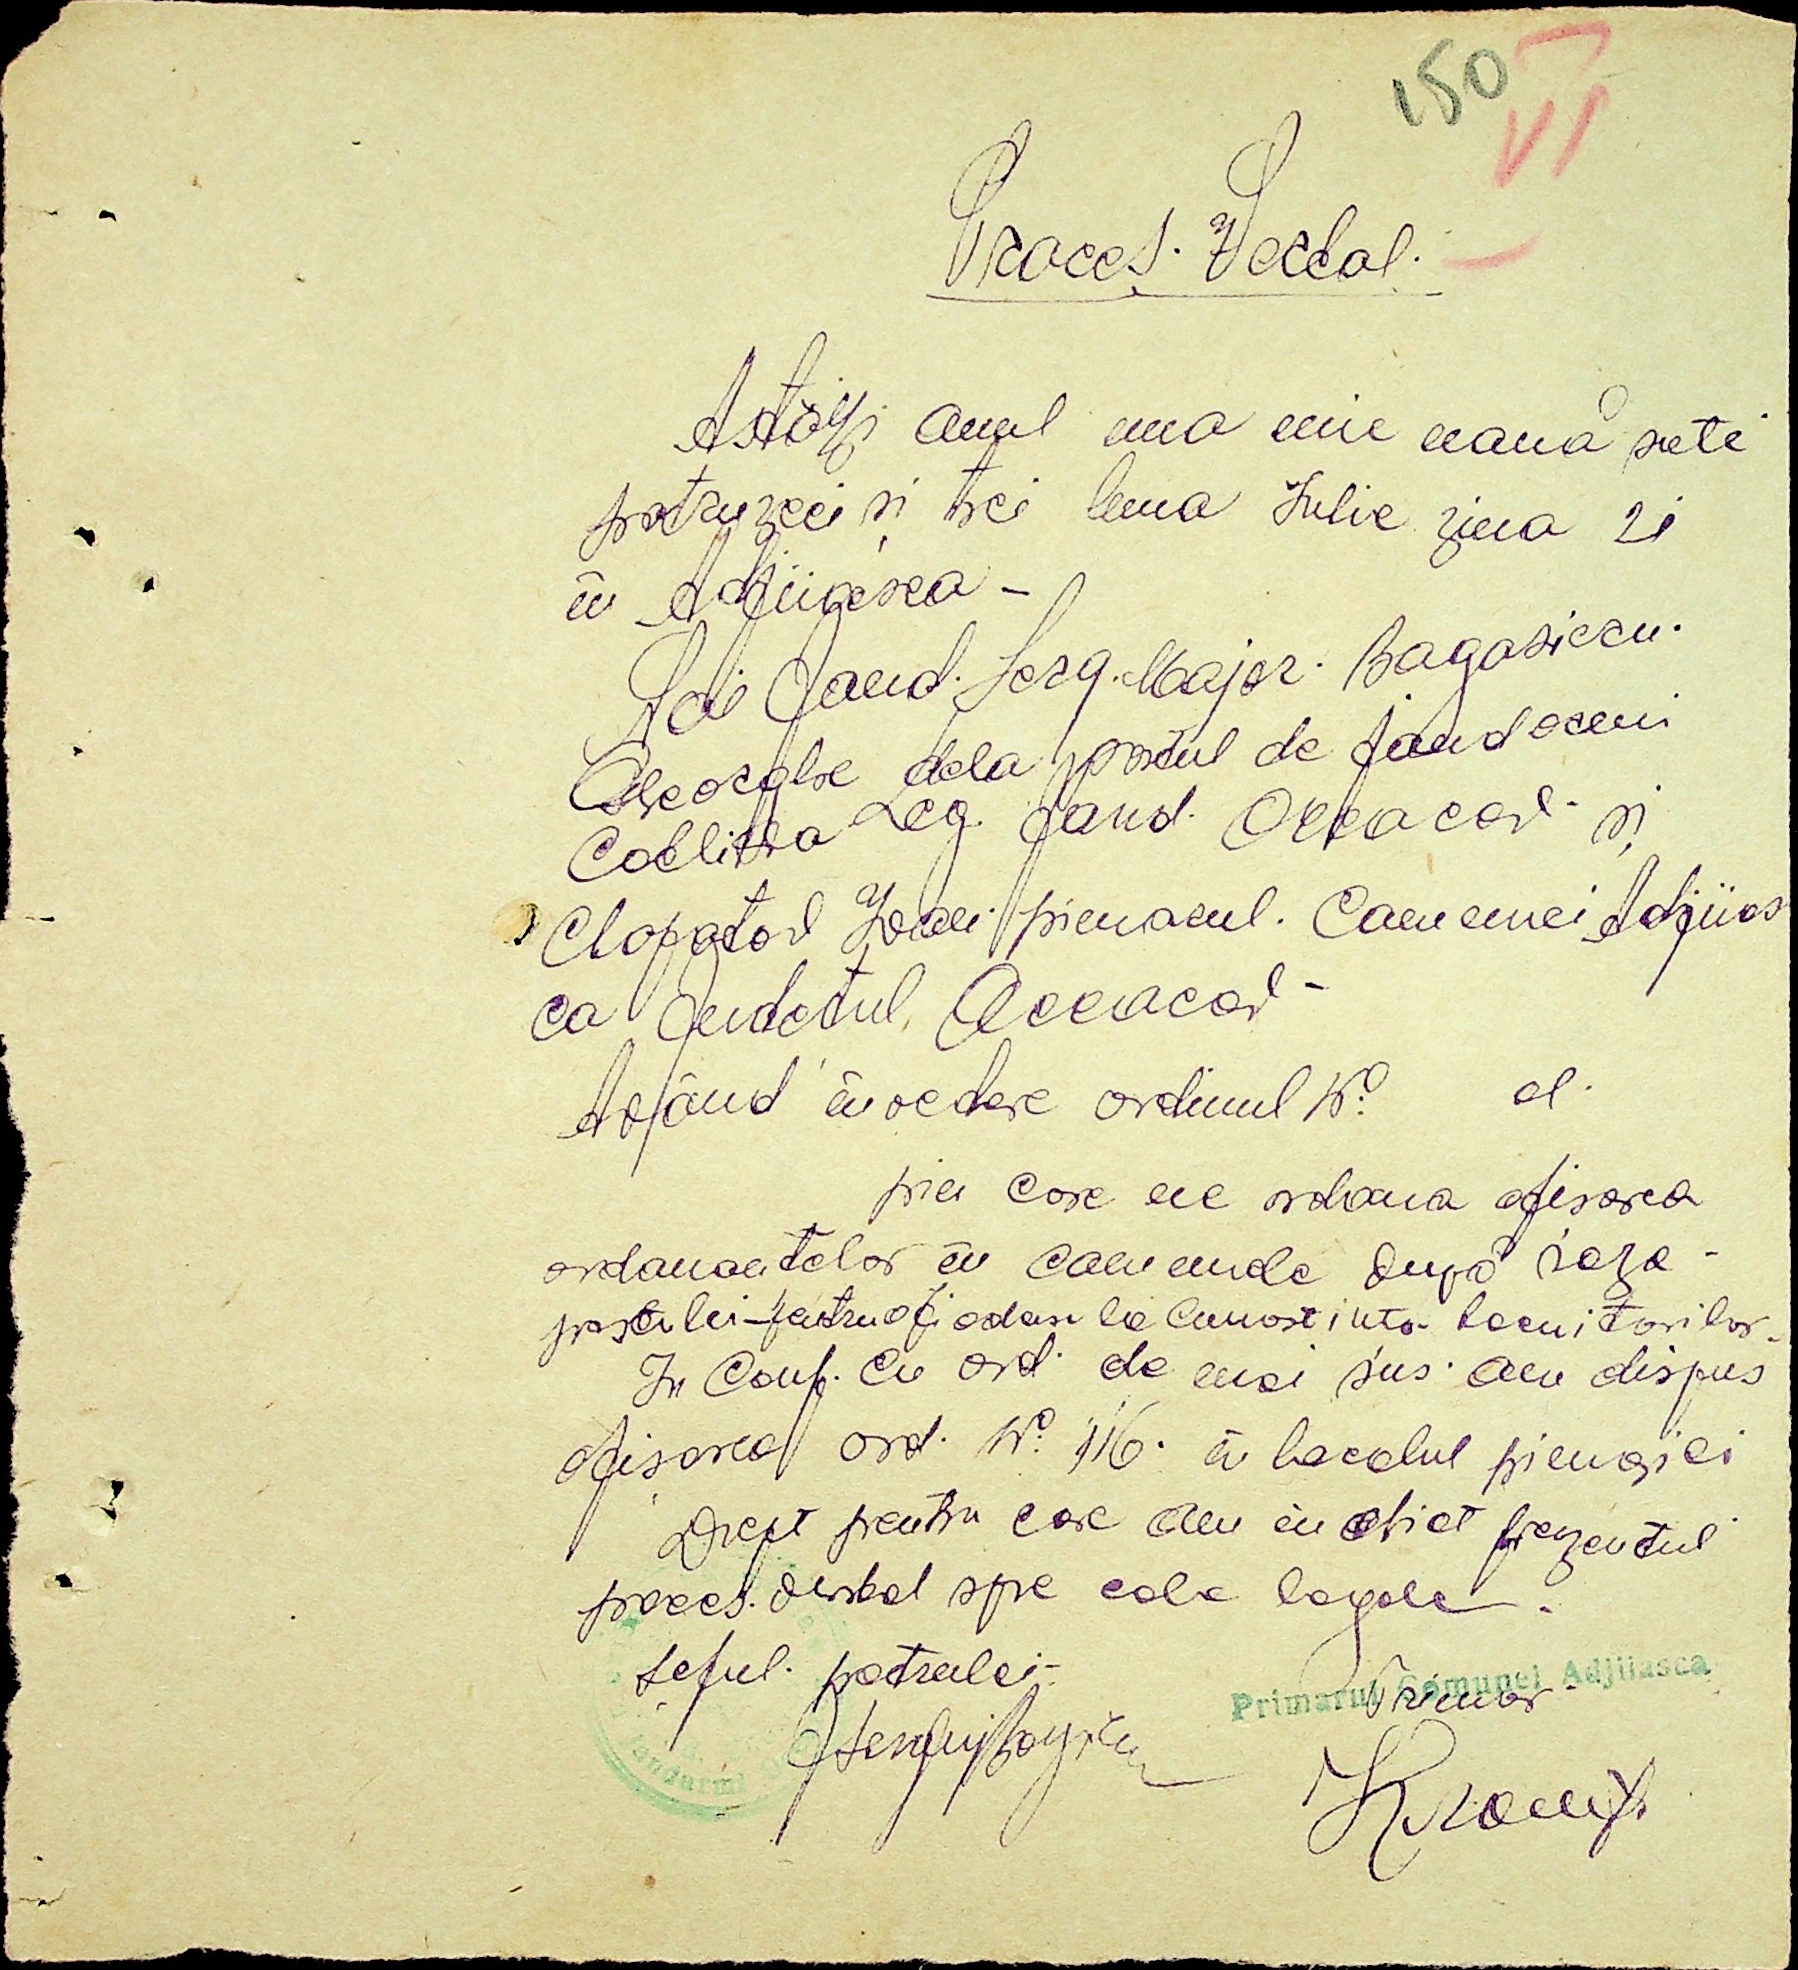 150
VI
Proces. Verbal.
Astăzi anul una mie nouă sute
patruzeci și trei luna Iulie ziua 21
în Adjiiasca -
Noi Jand. Serg. Major.
Gheorghe dela postul de jandarmi
Coblitka Leg. Jand. Oceacov și
Clopatov Ivan primarul. Comunei Adjiias
ca Judetul Oceacov -
Având în vedere ordinul No. al.
prin care ne ordona afisarea
ordonantelor în comunele după raza -
postului - pentru a fi aduse la cunostinta locuitorilor -
In Conf. cu ord. de mai sus. am dispus
afisarea ord. No. 116. în localul primariei
Drept pentru care am incheiat prezentul
proces. verbal spre cele legale -
Seful. patrulei -
Primarul Comunei Adjiiasca
Primar -